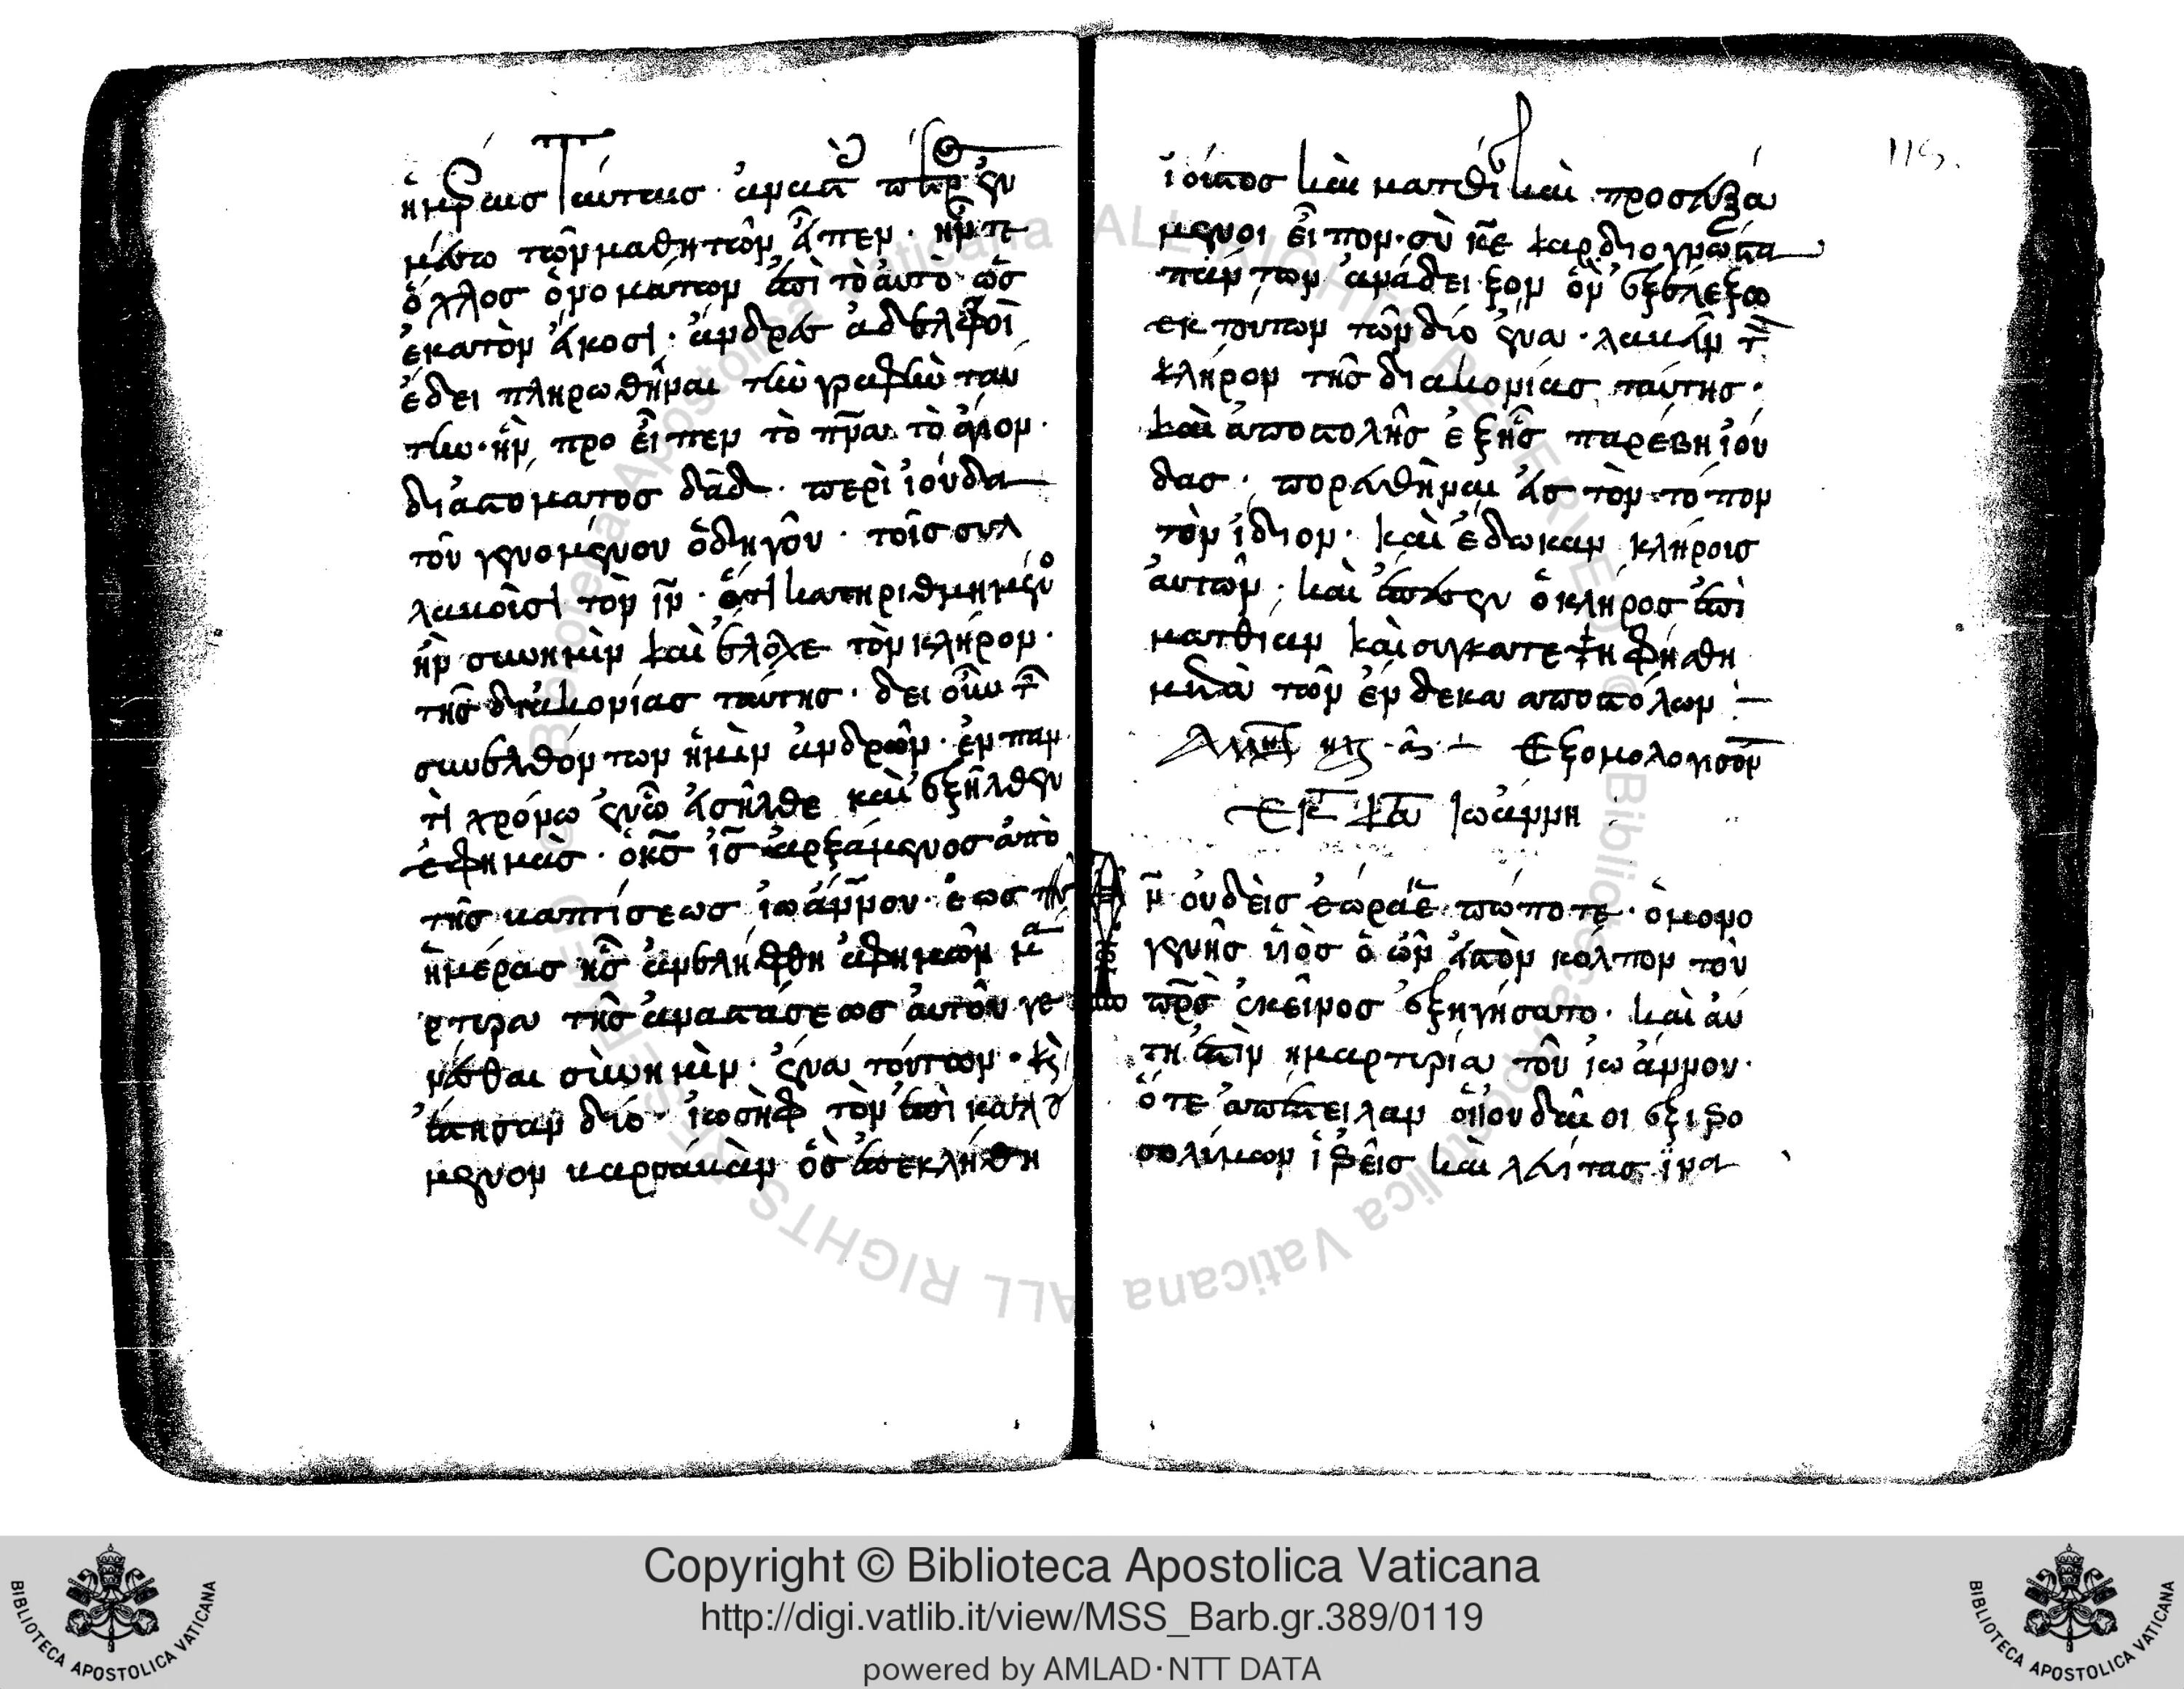 ἡμέραις ταύταις· ἀναστ πετρ ἐν
μέσω τῶν μαθητῶν εἶπεν· ἦν τε
ὄχλος ὀνομάτων ἐπὶ τὸ αὐτὸ ὡσ
ἑκατὸν εἴκοσι· ἄνδρες ἀδελφοὶ
ἔδει πληρωθῆναι τὴν γραφὴν ταύ
την· ἣν προεῖπεν τὸ πνα τὸ ἅγιον·
διὰ στόματος δαδ· περὶ ἰούδα
τοῦ γενομένου ὁδηγοῦ· τοῖς συλ
λαβοῦσι τὸν ιν· ὅτι κατηριθμημένο
ἦν σὺν ἡμῖν καὶ ἔλαχε τὸν κλῆρον·
τῆς διακονίας ταύτης· δεῖ οὖν τ
συνελθόντων ἡμῖν ἀνδρῶν· ἐν παν
τὶ χρόνω ἐν ὧ εἰσῆλθε καὶ ἐξῆλθεν
ἐφ ημᾶς· ὁ κς ις ἀρξάμενος ἀπὸ
τῆς βαπτίσεως ἰωάννου· ἕως τῆς
ἡμέρας ἧς ἀνελήφθη ἀφ ημῶν μα
ρτυρα τῆς ἀναστάσεως αὐτοῦ γε
νέσθαι σὺν ημῖν· ἕνα τούτων· κὶ
ἔστησαν δύο· ἰωσὴφ τὸν ἐπὶ καλού
μενον βαρσαβὰν ὃς ἐπεκλήθη
115.
ἰοῦστος καὶ ματθί καὶ προσευξά
μενοι εἶπον· σὺ κε καρδιογνῶστα
πάντων ἀνάδειξον ὃν ἐξελέξω
ἐκ τούτων τῶν δύο ἕνα· λαβεῖν τ
κλῆρον τῆς διακονίας ταύτης·
καὶ ἀποστολῆς ἐξ ἧς παρέβη ἰού
δας· πορευθῆναι εἰς τὸν τόπον
τὸν ἴδιον· καὶ ἔδωκαν κλήροις
αὐτῶν· καὶ ἔπεσεν ὁ κλῆρος ἐπὶ
ματθίαν καὶ συγκατεψηφήσθη
μετὰ τῶν ἕνδεκα αποστόλων :—
Ἀλλη ηχ· α· Εξομολογισον
Εκ τ κατ Ἰωάννη
Θ
ν οὐδεὶς ἑώρακε πώποτε· ὁ μονο
γενὴς υἱὸς ὁ ὢν εἰς τὸν κόλπον τοῦ
πρς ἐκεῖνος ἐξηγήσατο· καὶ αὕ
τη ἐστὶν η μαρτυρία τοῦ ἰωάννου·
ὅτε ἀπέστειλαν οἱ ἰουδαῖοι ἐξ ιερο
σολύμων ἱερεῖς καὶ λευίτας ἵνα
Copyright © Biblioteca Apostolica Vaticana
http://digi.vatlib.it/view/MSS_Barb.gr.389/0119
powered by AMLAD·NTT DATA